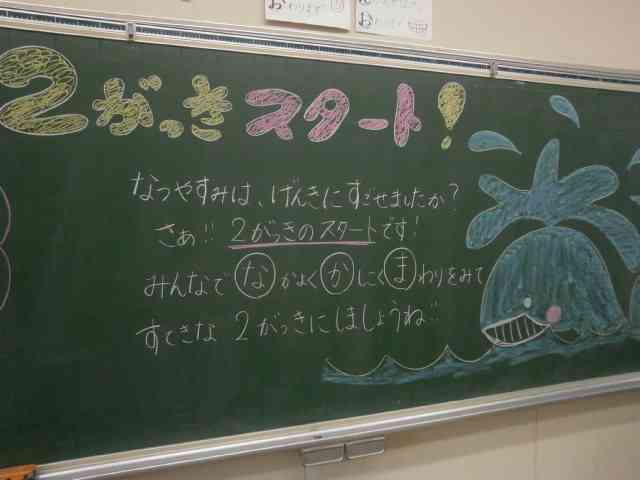 2がっきスタート!
なつやすみは、げんきにすごせましたか?
さぁ!! 2がっきのスタートです!
みんなで なかよく かしこく まわりをみて
すてきな 2がっきにしましょうね!!